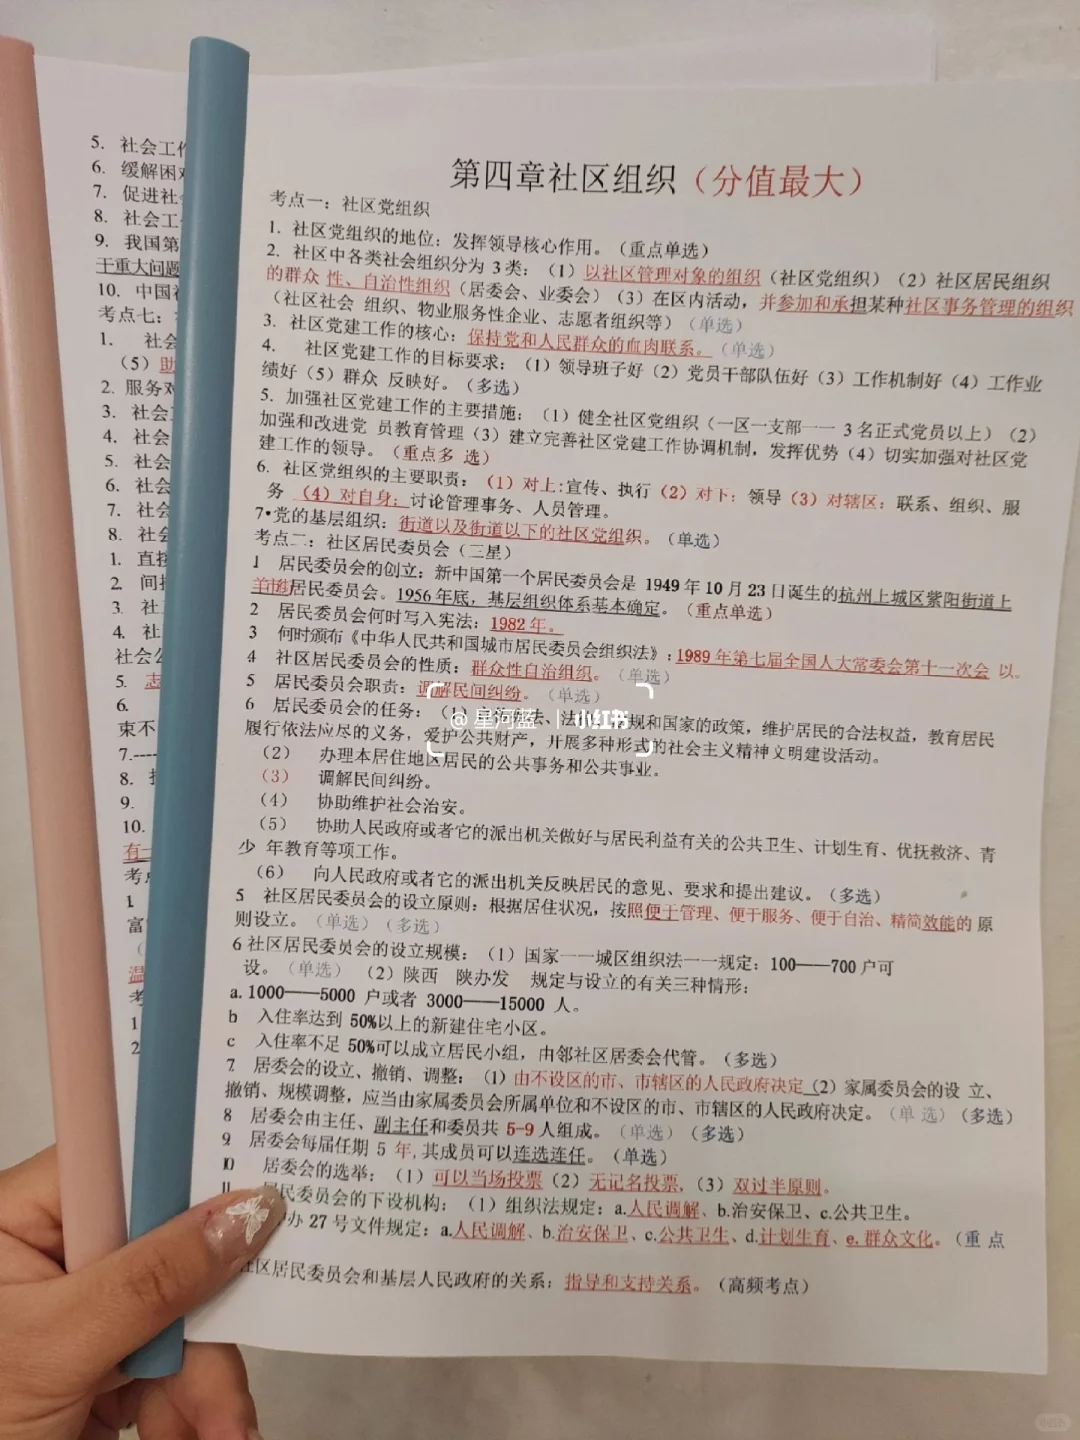 5. 社会工作
6. 缓解困
7. 促进社
8. 社会工
9. 我国第
干重大问题
10. 中国
考点七：
1. 社会
（5）助
2. 服务对
3. 社会
4. 社会
5. 社会
6. 社会
7. 社会
8. 社会
1. 直接
2. 间接
3. 社
4. 社
社会公
5. 志
6.
束不
7.----
8.
9.
10.
有一
考点
1
富
温
考
1
2
第四章社区组织（分值最大）
考点一：社区党组织
1. 社区党组织的地位：发挥领导核心作用。（重点单选）
2. 社区中各类社会组织分为 3 类：（1）以社区管理对象的组织（社区党组织）（2）社区居民组织
的群众 性、自治性组织（居委会、业委会）（3）在区内活动，并参加和承担某种社区事务管理的组织
（社区社会 组织、物业服务性企业、志愿者组织等）（单选）
3. 社区党建工作的核心：保持党和人民群众的血肉联系。（单选）
4. 社区党建工作的目标要求：（1）领导班子好（2）党员干部队伍好（3）工作机制好（4）工作业
绩好（5）群众 反映好。（多选）
5. 加强社区党建工作的主要措施：（1）健全社区党组织（一区一支部一一 3 名正式党员以上）（2）
加强和改进党 员教育管理（3）建立完善社区党建工作协调机制，发挥优势（4）切实加强对社区党
建工作的领导。（重点多 选）
6. 社区党组织的主要职责：（1）对上:宣传、执行（2）对下：领导（3）对辖区：联系、组织、服
务 （4）对自身：讨论管理事务、人员管理。
7•党的基层组织：街道以及街道以下的社区党组织。（单选）
考点二：社区居民委员会（三星）
1 居民委员会的创立：新中国第一个居民委员会是 1949 年 10 月 23 日诞生的杭州上城区紫阳街道上
羊街居民委员会。1956 年底，基层组织体系基本确定。（重点单选）
2 居民委员会何时写入宪法：1982 年。
3 何时颁布《中华人民共和国城市居民委员会组织法》：1989 年第七届全国人大常委会第十一次会 以。
4 社区居民委员会的性质：群众性自治组织。（单选）
5 居民委员会职责：调解民间纠纷。（单选）
6 居民委员会的任务：（1）法、法规和国家的政策，维护居民的合法权益，教育居民
履行依法应尽的义务，爱护公共财产，开展多种形式的社会主义精神文明建设活动。
（2） 办理本居住地区居民的公共事务和公共事业。
（3） 调解民间纠纷。
（4） 协助维护社会治安。
（5） 协助人民政府或者它的派出机关做好与居民利益有关的公共卫生、计划生育、优抚救济、青
少 年教育等项工作。
（6） 向人民政府或者它的派出机关反映居民的意见、要求和提出建议。（多选）
5 社区居民委员会的设立原则：根据居住状况，按照便于管理、便于服务、便于自治、精简效能的 原
则设立。（单选）（多选）
6 社区居民委员会的设立规模：（1）国家一一城区组织法一一规定：100——700 户可
设。（单选） （2）陕西 陕办发 规定与设立的有关三种情形：
a. 1000——5000 户或者 3000——15000 人。
b 入住率达到 50%以上的新建住宅小区。
c 入住率不足 50%可以成立居民小组，由邻社区居委会代管。（多选）
7. 居委会的设立、撤销、调整：（1）由不设区的市、市辖区的人民政府决定（2）家属委员会的设 立、
撤销、规模调整，应当由家属委员会所属单位和不设区的市、市辖区的人民政府决定。（单 选）（多选）
8 居委会由主任、副主任和委员共 5-9 人组成。（单选）（多选）
9. 居委会每届任期 5 年,其成员可以连选连任。（单选）
10 居委会的选举：（1）可以当场投票（2）无记名投票，（3）双过半原则。
11 居民委员会的下设机构：（1）组织法规定：a.人民调解、b.治安保卫、c.公共卫生。
办 27 号文件规定：a.人民调解、b.治安保卫、c.公共卫生、d.计划生育、e.群众文化。（重 点
社区居民委员会和基层人民政府的关系：指导和支持关系。（高频考点）
@星河蓝 | 小红书